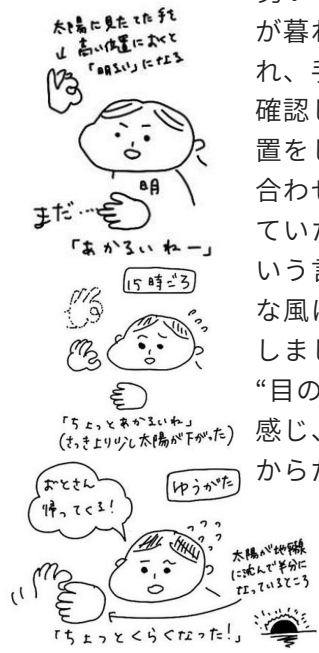 太陽に見たてた手を
↓高い位置におくと
「明るい」になる
明
まだ…
「あかるいねー」
15時ごろ
「ちょっとあかるいね」
(さっきより少し太陽が下がった)
おとさん
帰ってくる!
ゆうがた
太陽が地平線
に沈んで半分に
なっているところ
「ちょっとくらくなった!」
が暮れ
れ、手
確認し
置をし
合わせ
ていた
いう言
な風に
しまし
“目の
感じ、
からだ